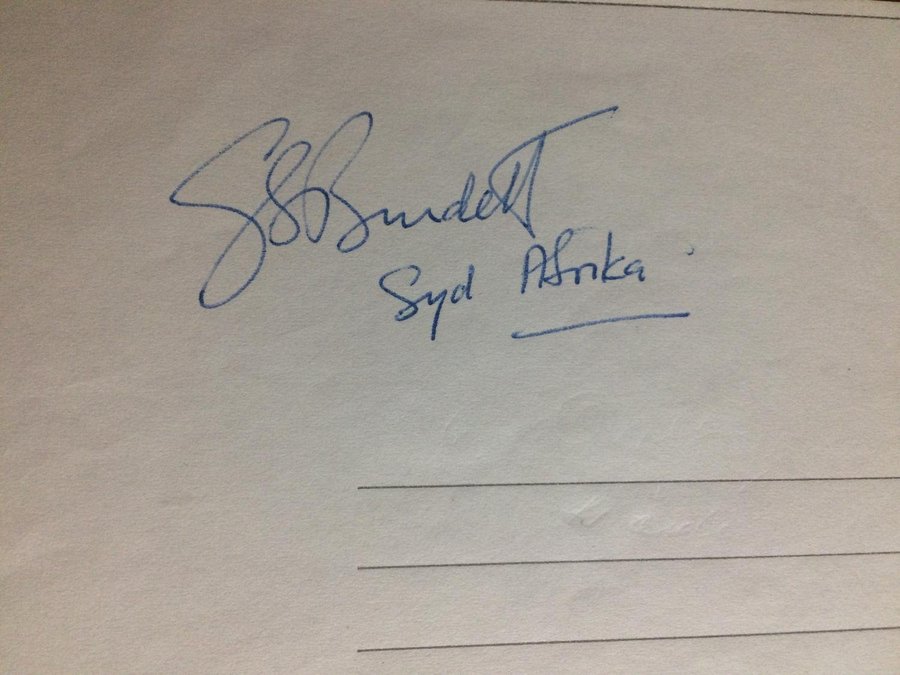 GSBurdett
Syd Afrika